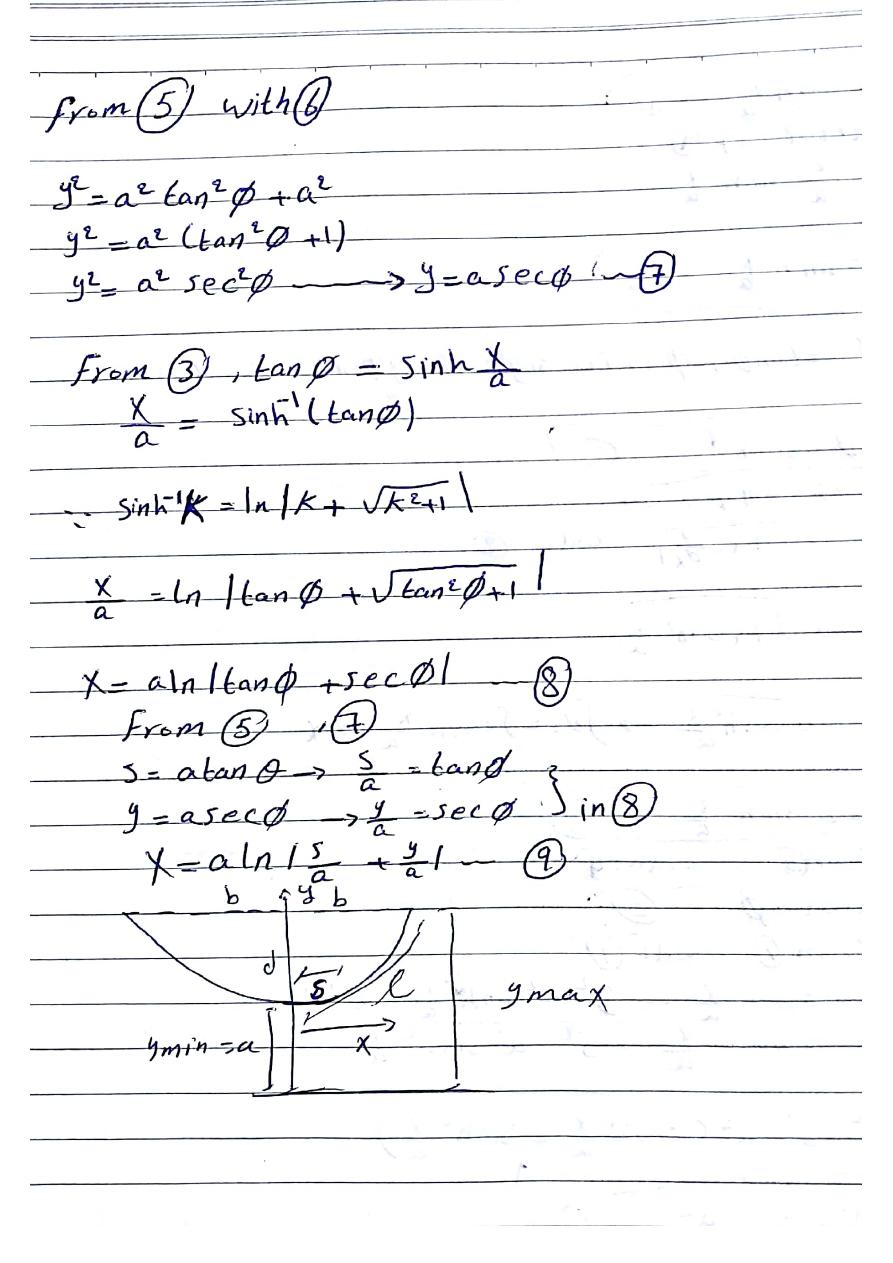 from ⑤ with ⑥
y² = a² tan² ø + a²
y² = a² (tan² ø + 1)
y² = a² sec² ø ⟶ y = a sec ø ⑦
From ③, tan ø = sinh x/a
x/a = sinh⁻¹(tan ø)
∵ sinh⁻¹ k = ln |k + √(k²+1)|
x/a = ln |tan ø + √(tan² ø + 1)|
x = a ln |tan ø + sec ø| ⑧
From ⑤, ⑦
s = a tan θ → s/a = tan ø
y = a sec ø → y/a = sec ø } in ⑧
x = a ln |s/a + y/a| ⑨
b y b
d
s l y max
y min = a x